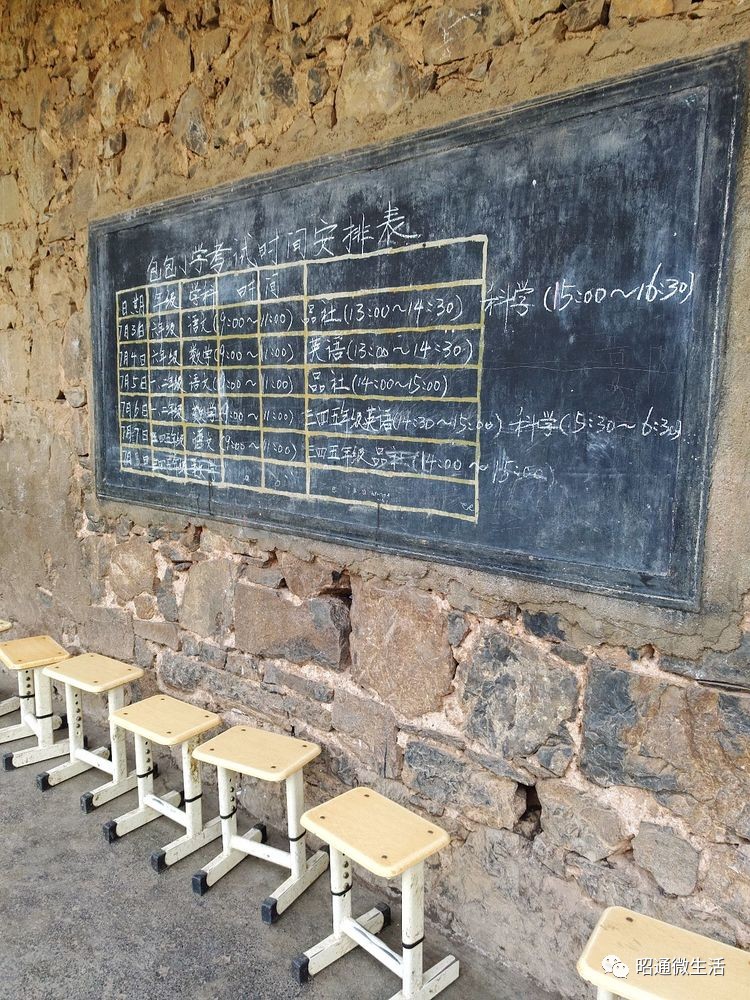 包包小学考试时间安排表
日期 年级 学科 时间
7月3日 六年级 语文(9:00~11:00) 品社(13:00~14:30) 科学(15:00~16:30)
7月4日 六年级 数学(9:00~11:00) 英语(13:00~14:30)
7月5日 一、二年级 语文(9:00~11:00) 品社(14:00~15:00)
7月6日 一、二年级 数学(9:00~11:00) 三四五年级英语(14:30~15:00) 科学(15:30~16:30)
7月7日 三四五年级 语文(9:00~11:00) 三四五年级品社(14:00~15:00)
三四五年级
昭通微生活